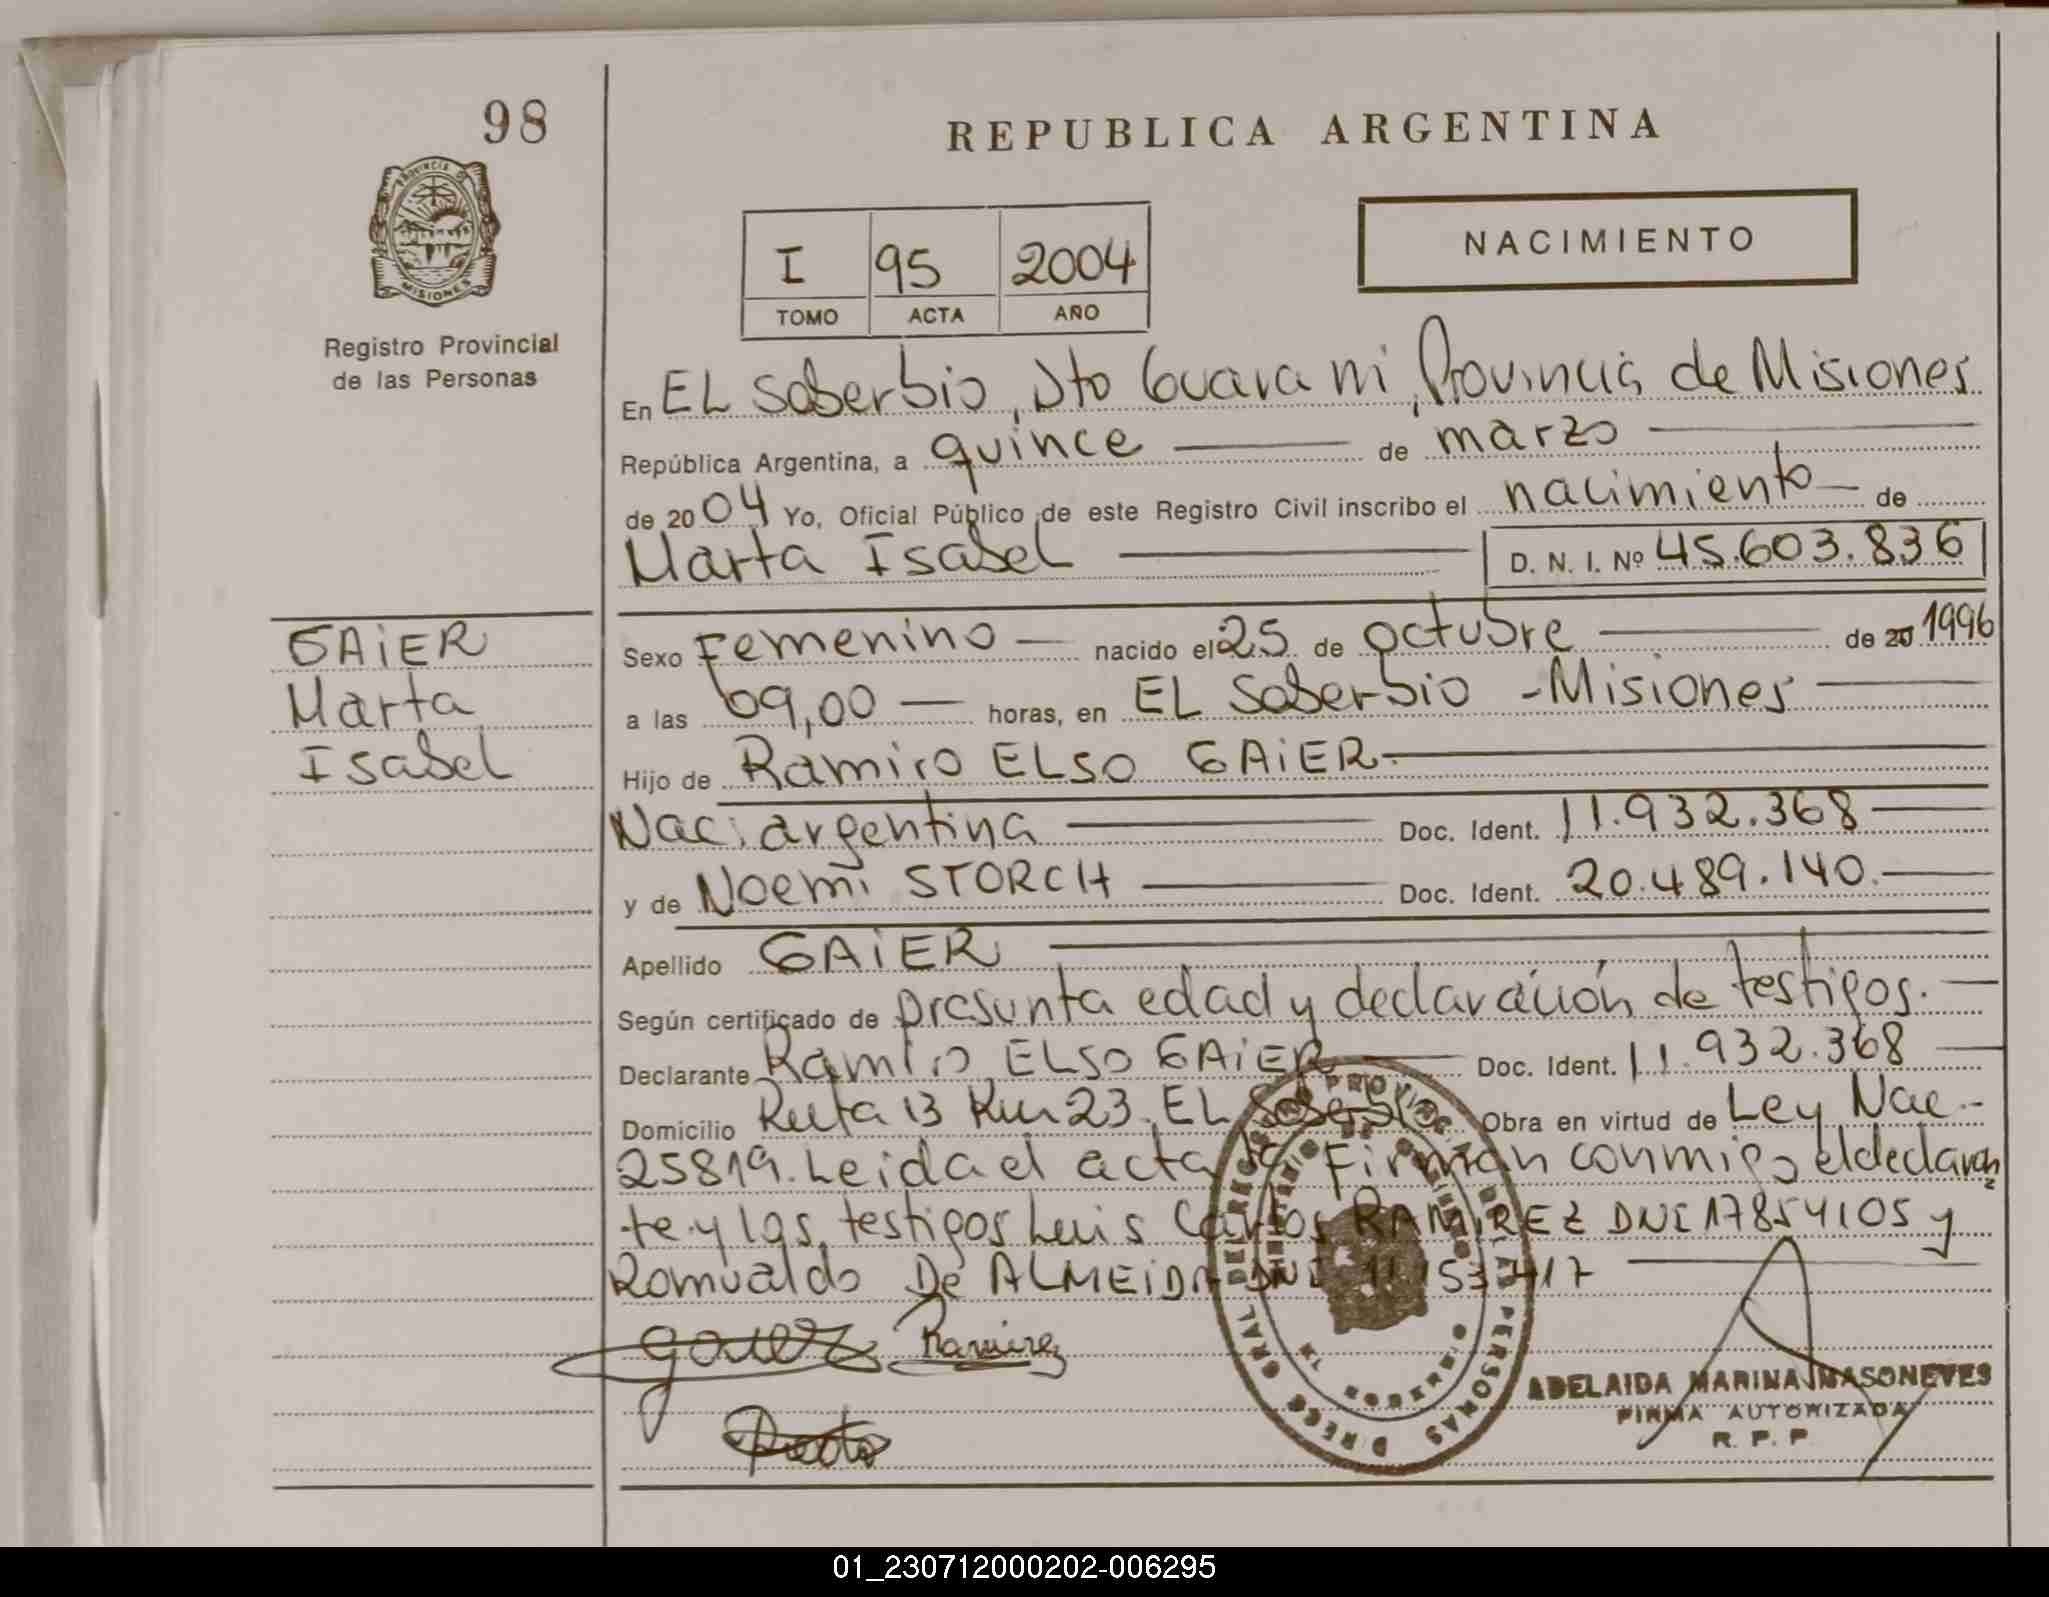 98
REPUBLICA ARGENTINA
PROVINCIA D
MISIONES
Registro Provincial
de las Personas
I 95 2004
TOMO ACTA AÑO
NACIMIENTO
En EL Soberbio, Dto Guarani, Provincia de Misiones
República Argentina, a quince de marzo
de 2004 Yo, Oficial Público de este Registro Civil inscribo el nacimiento de
Marta Isabel D. N. I. Nº 45.603.836
GAiER
Marta
Isabel
Sexo Femenino nacido el 25 de octubre de 20 1996
a las 09,00 horas, en EL Soberbio - Misiones
Hijo de Ramiro ELSO GAiER
Nac. argentina Doc. Ident. 11.932.368
y de Noemi STORCH Doc. Ident. 20.489.140.
Apellido GAiER
Según certificado de presunta edad y declaración de testigos.
Declarante Ramiro ELSO GAiER Doc. Ident. 11.932.368
Domicilio Ruta 13 Km 23. EL Soberbio Obra en virtud de Ley Nac.
25819. Leida el acta la Firman conmigo el declaran
te y los testigos Luis Carlos RAMIREZ DNI 17854105 y
Romualdo De ALMEiDA DNI
Ramirez
ADELAIDA MARINA MASONEVES
FIRMA AUTORIZADA
R. P. P.
01_230712000202-006295